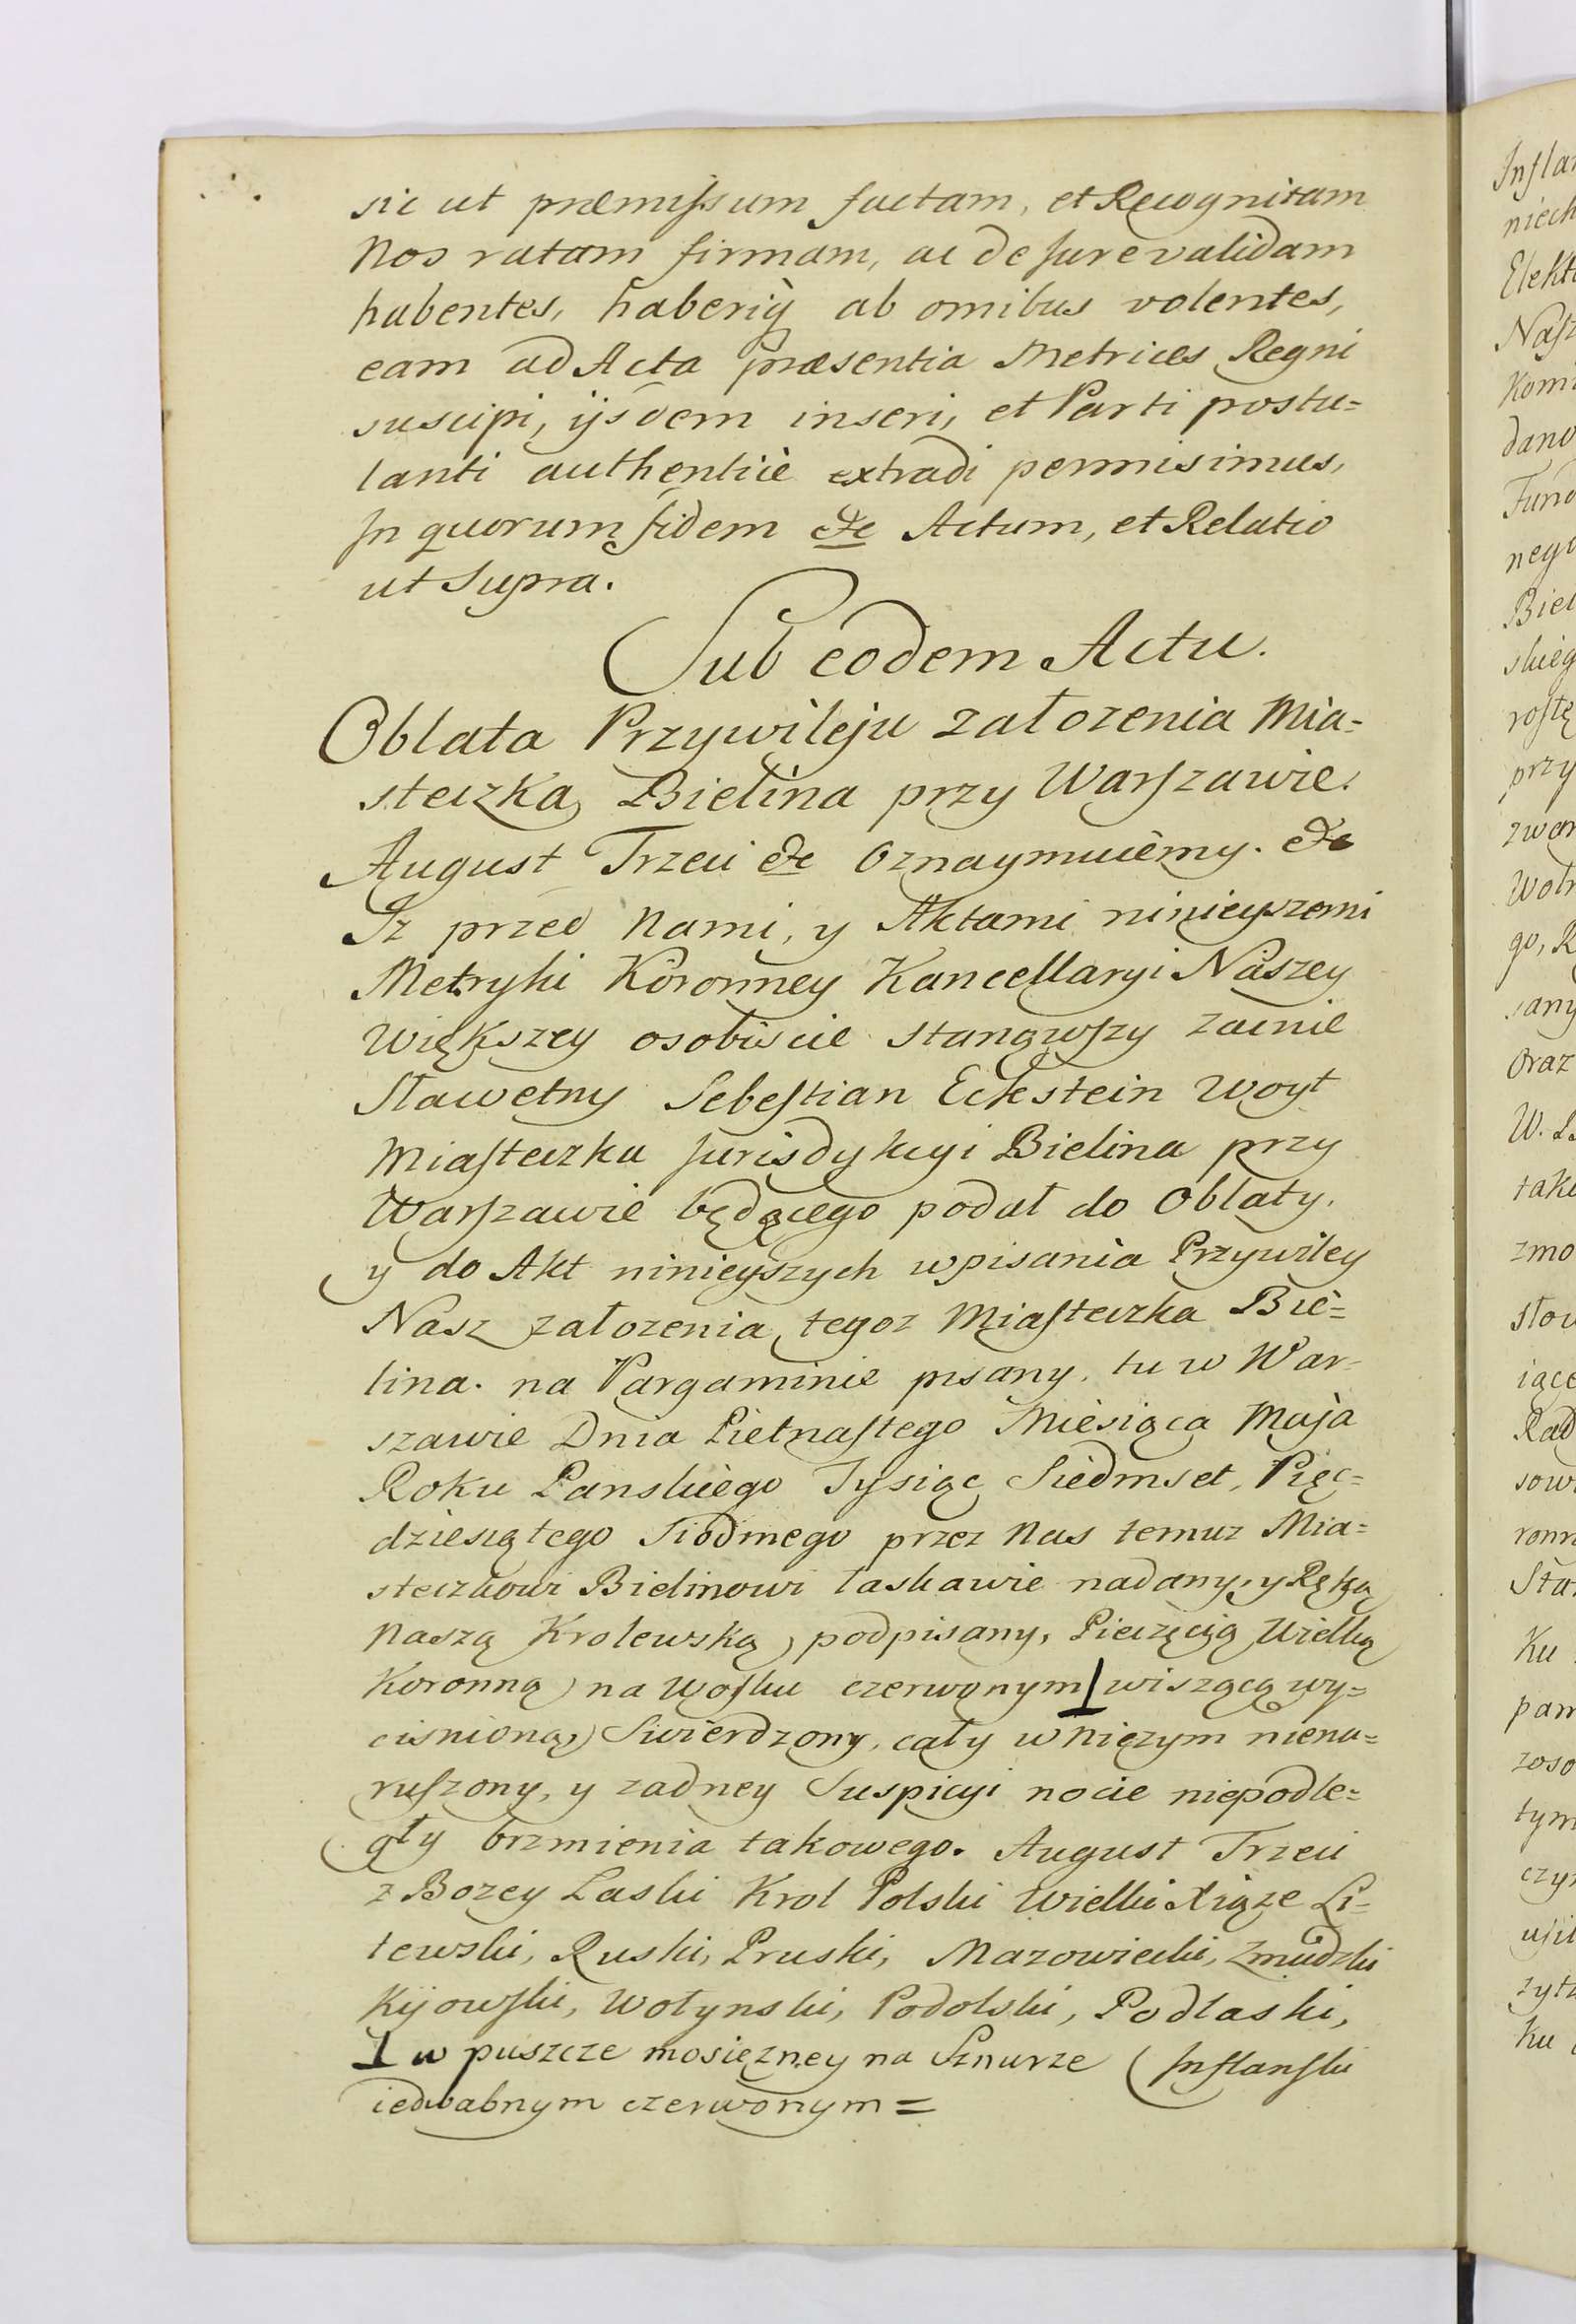 sic ut præmissum factam, et Recognitam
Nos ratam firmam, ac de Jure validam
habentes, haberiq́ ab omibus volentes,
eam ad Acta præsentia Metrices Regni
suscipi, ijsdem inseri, et Parti postu=
lanti authenticè extradi permisimus,
Jn quorum fidem &c Actum, et Relatio
ut Supra.
Sub eodem Actu.
Oblata Przywileju załozenia Mia=
steczka Bielina przy Warszawie.
August Trzeci &c Oznaymuiemy. &c
Jz przed Nami, y Aktami ninieyszemi
Metryki Koronney Kancellaryi Naszey
Większey osobiscie stanąwszy zacnie
Sławetny Sebestian Eckstein Woyt
Miasteczka Jurisdykcyi Bielina przy
Warszawie będącego podał do Oblaty,
y do Akt ninieyszych wpisania Przywiley
Nasz załozenia tegoz Miasteczka Bie=
lina. na Pargaminie pisany, tu w War=
szawie Dnia Pietnastego Miesiąca Maja
Roku Panskiego Tysiąc Siedmset, Pięc=
dziesiątego Siodmego przez Nas temuz Mia=
steczkowi Bielinowi łaskawie nadany, y Ręką
Naszą Krolewską podpisany, Pieczęcią Wielką
Koronną na Wosku czerwonym ⊥ wiszącą wy=
cisnioną Stwierdzony, cały w niczym niena=
ruszony, y zadney Suspicyi nocie niepodle=
gły brzmienia takowego. August Trzeci
z Bozey Łaski Krol Polski Wielki Xiąze Li=
tewski, Ruski, Pruski, Mazowiecki, Zmudzki
Kijowski, Wołynski, Podolski, Podlaski,
⊥ w puszcze mosiezney na Sznurze (Jnflanski
iedwabnym czerwonym =
Jnfla
niech
Elekt
Nasz
Kom
dano
Fund
nego
Biel
skieg
rostę
przy
zwan
Woln
go, R
sany
Oraz
W.
taki
zmo
słow
iące
Rad
sow
ronn
Sta
Ku
pam
zoso
tym
czy
usil
zyt
ku